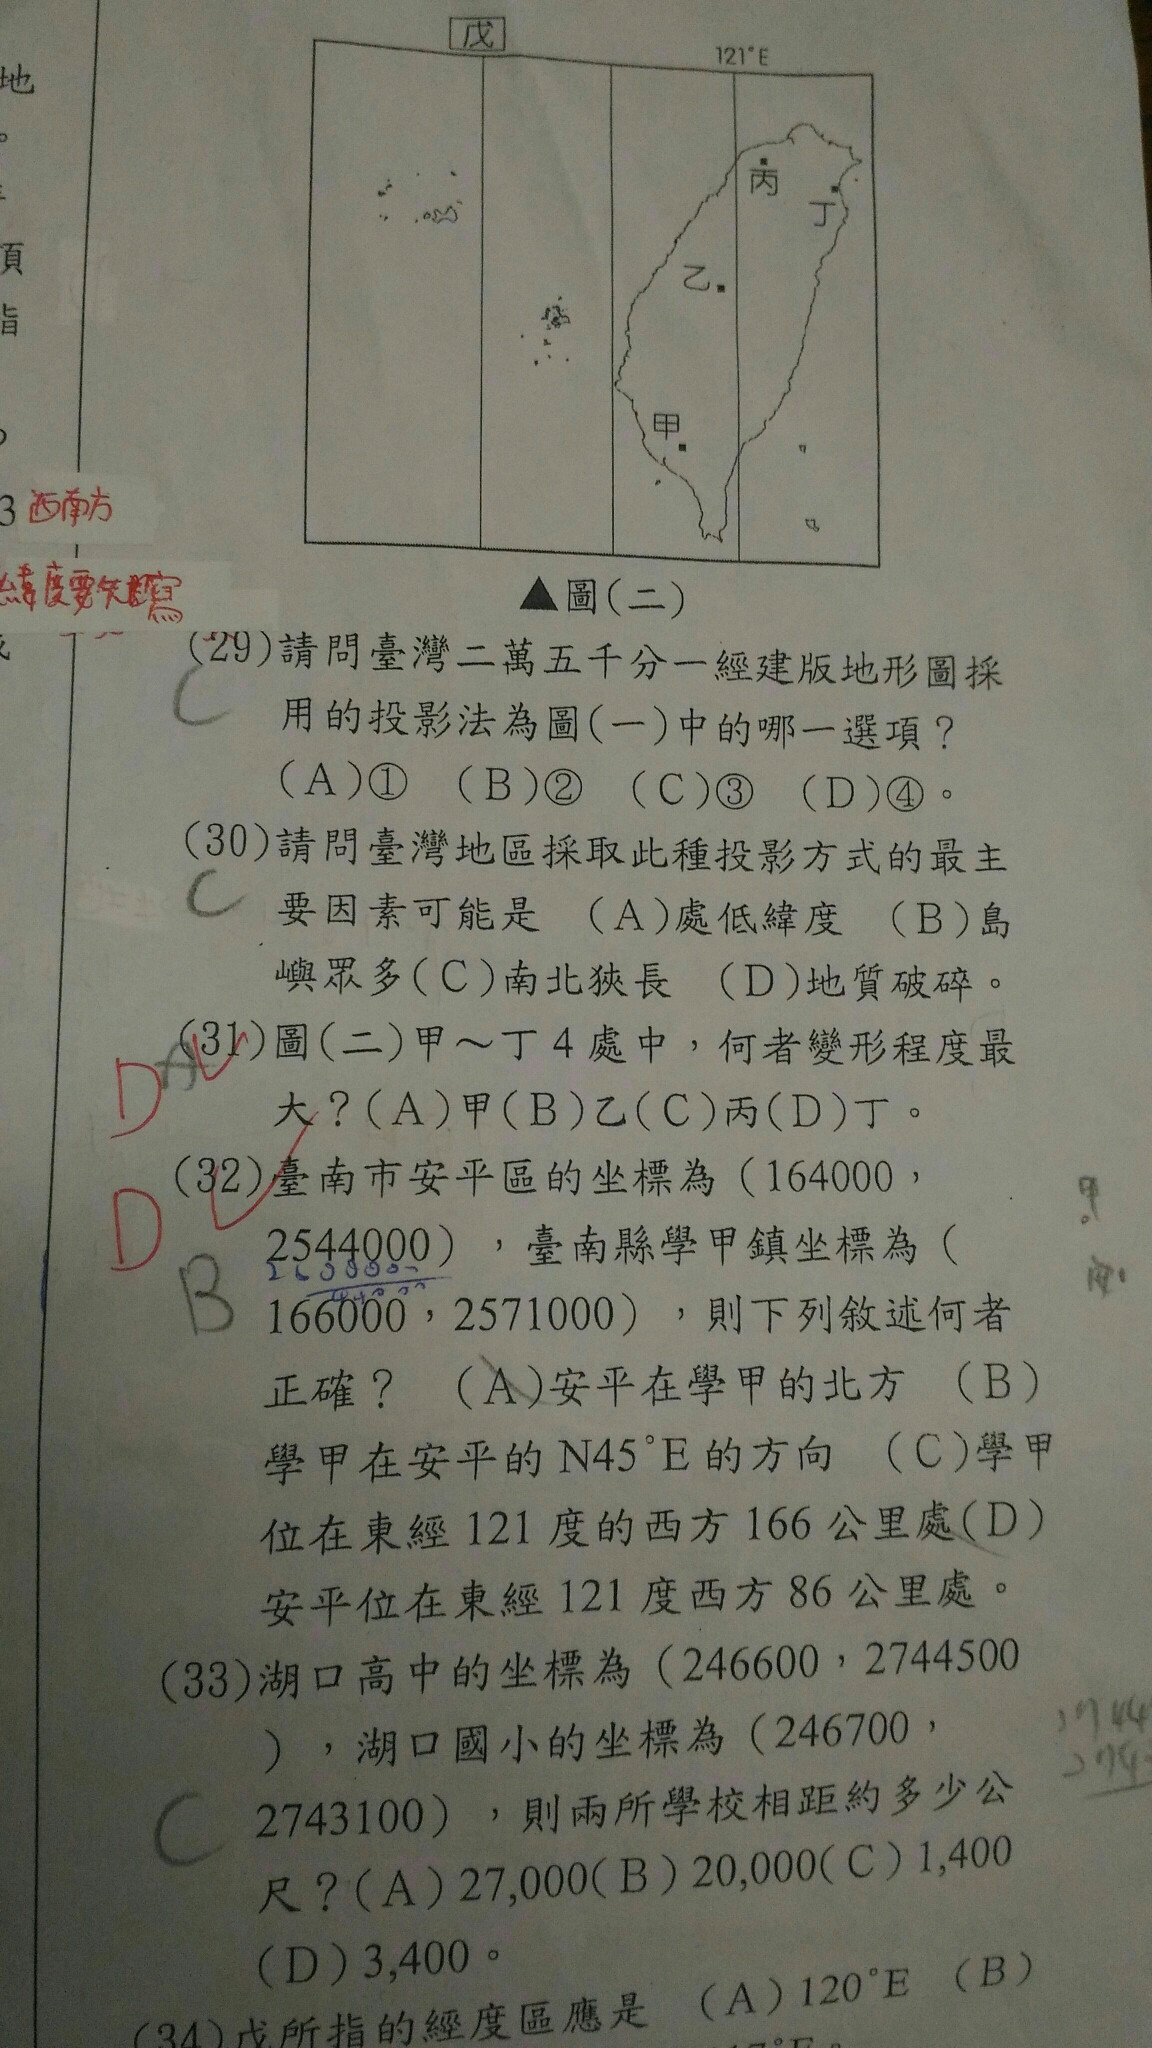 戊
121°E
丙
丁
乙
甲
地
。
頂
指
3 西南方
▲圖(二)
(29)請問臺灣二萬五千分一經建版地形圖採
C
用的投影法為圖(一)中的哪一選項？
(A)① (B)② (C)③ (D)④。
(30)請問臺灣地區採取此種投影方式的最主
C
要因素可能是 (A)處低緯度 (B)島
嶼眾多(C)南北狹長 (D)地質破碎。
(31)圖(二)甲～丁4處中，何者變形程度最
D A
大？(A)甲(B)乙(C)丙(D)丁。
(32)臺南市安平區的坐標為（164000，
D
2544000），臺南縣學甲鎮坐標為（
B
166000，2571000），則下列敘述何者
正確？ (A)安平在學甲的北方 (B)
學甲在安平的N45°E的方向 (C)學甲
位在東經121度的西方166公里處(D)
安平位在東經121度西方86公里處。
(33)湖口高中的坐標為（246600，2744500
），湖口國小的坐標為（246700，
C
2743100），則兩所學校相距約多少公
尺？(A)27,000(B)20,000(C)1,400
(D)3,400。
(34)戊所指的經度區應是 (A)120°E (B)
甲